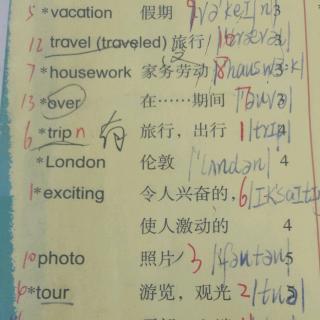 5 *vacation 假期 9 /və'keɪʃn/ 3
12 travel (traveled) 旅行 /'trævəl/
7 *housework 家务劳动 8 /'hauswɜ:k/
13 *over 在……期间 /'əuvə/
6 *trip n 旅行，出行 1 /trɪp/ 4
*London 伦敦 /'lʌndən/ 4
1 *exciting 令人兴奋的， 6 /ɪk'saɪtɪŋ
使人激动的 4
10 photo 照片 3 /'fəutəu/ 5
*tour 游览，观光 2 /tuə/